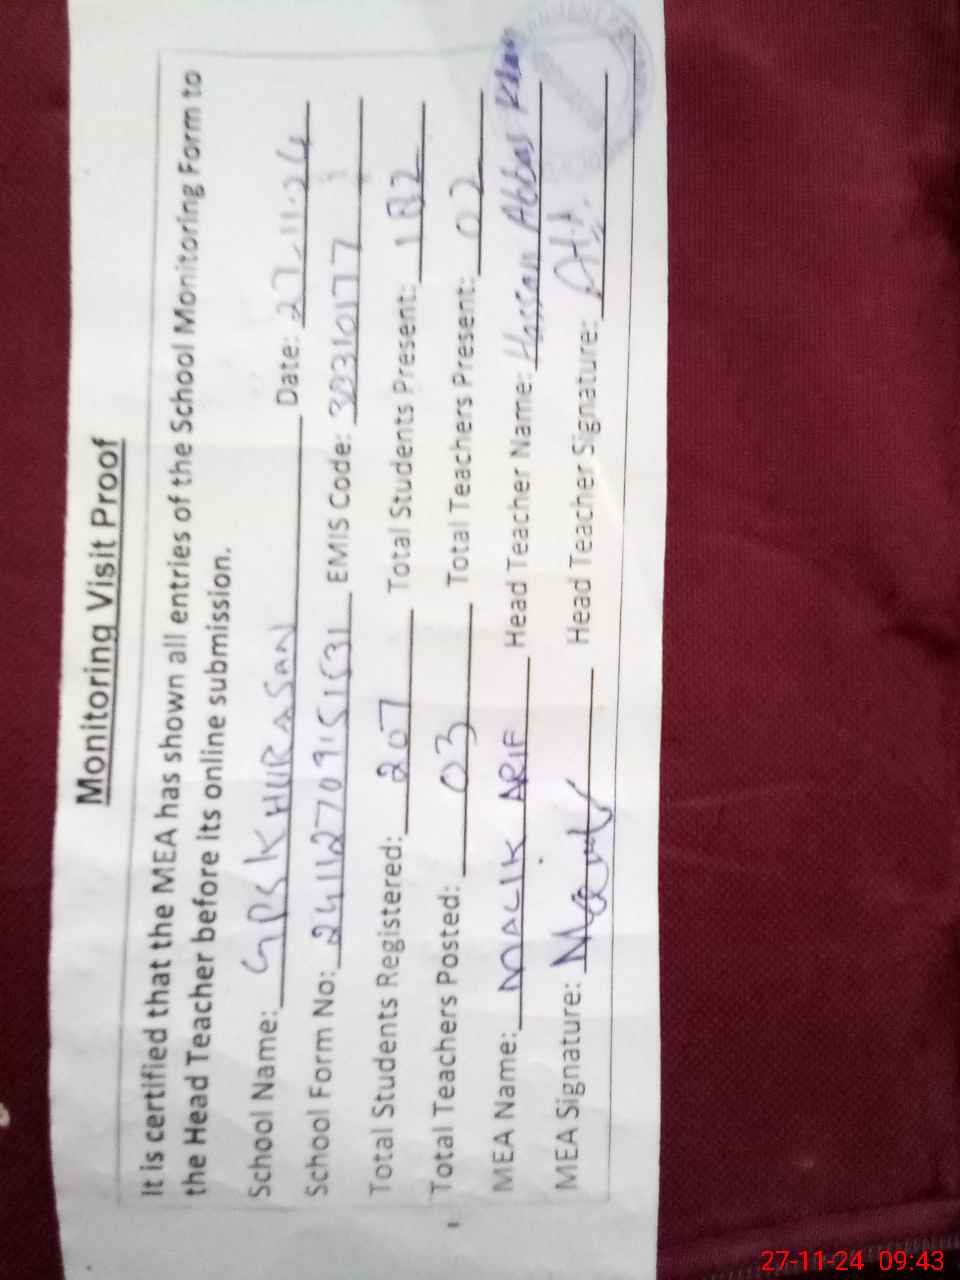 Monitoring Visit Proof
It is certified that the MEA has shown all entries of the School Monitoring Form to
the Head Teacher before its online submission.
School Name: GPS KHURASAN Date: 27-11-24
School Form No: EMIS Code: 38310177
Total Students Registered: 207 Total Students Present: 182
Total Teachers Posted: 03 Total Teachers Present: 02
MEA Name: MALIK ARIF Head Teacher Name: Hassan Abbas Khan
MEA Signature: Head Teacher Signature:
27-11-24 09:43